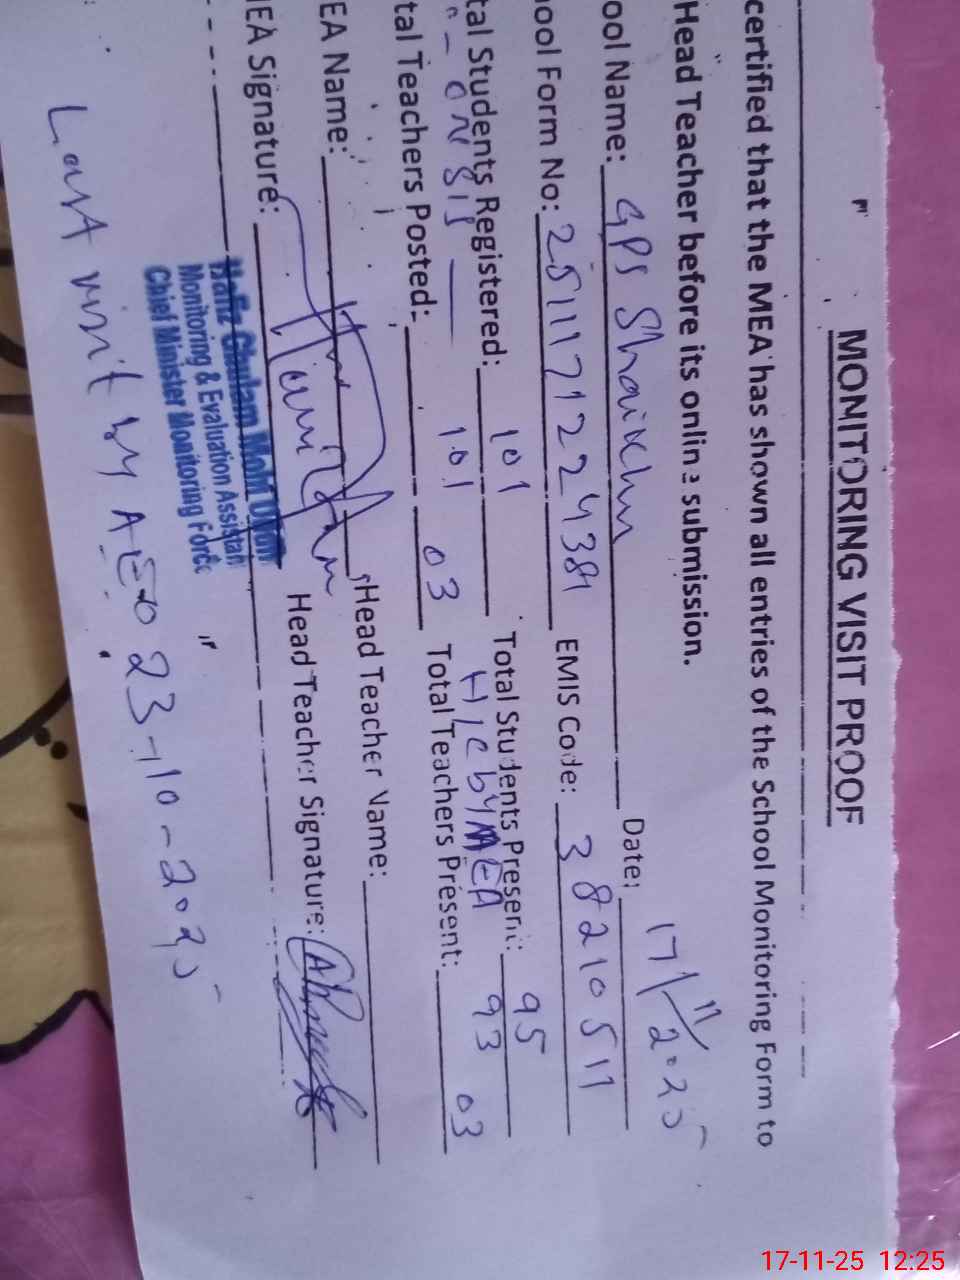 MONITORING VISIT PROOF
certified that the MEA has shown all entries of the School Monitoring Form to
Head Teacher before its online submission.
Date: 17/11/2025
ool Name: GPS Shaikhu
ool Form No: 25111712224381 EMIS Code: 38210511
tal Students Registered: 101 Total Students Present: 95
101 H/c by MEA 93
tal Teachers Posted: 03 Total Teachers Present: 03
EA Name: Head Teacher Name:
EA Signature: Head Teacher Signature:
Hafiz Ghulam
Monitoring & Evaluation Assistan
Chief Minister Monitoring Force
Last visit by AEO 23-10-2025
17-11-25 12:25